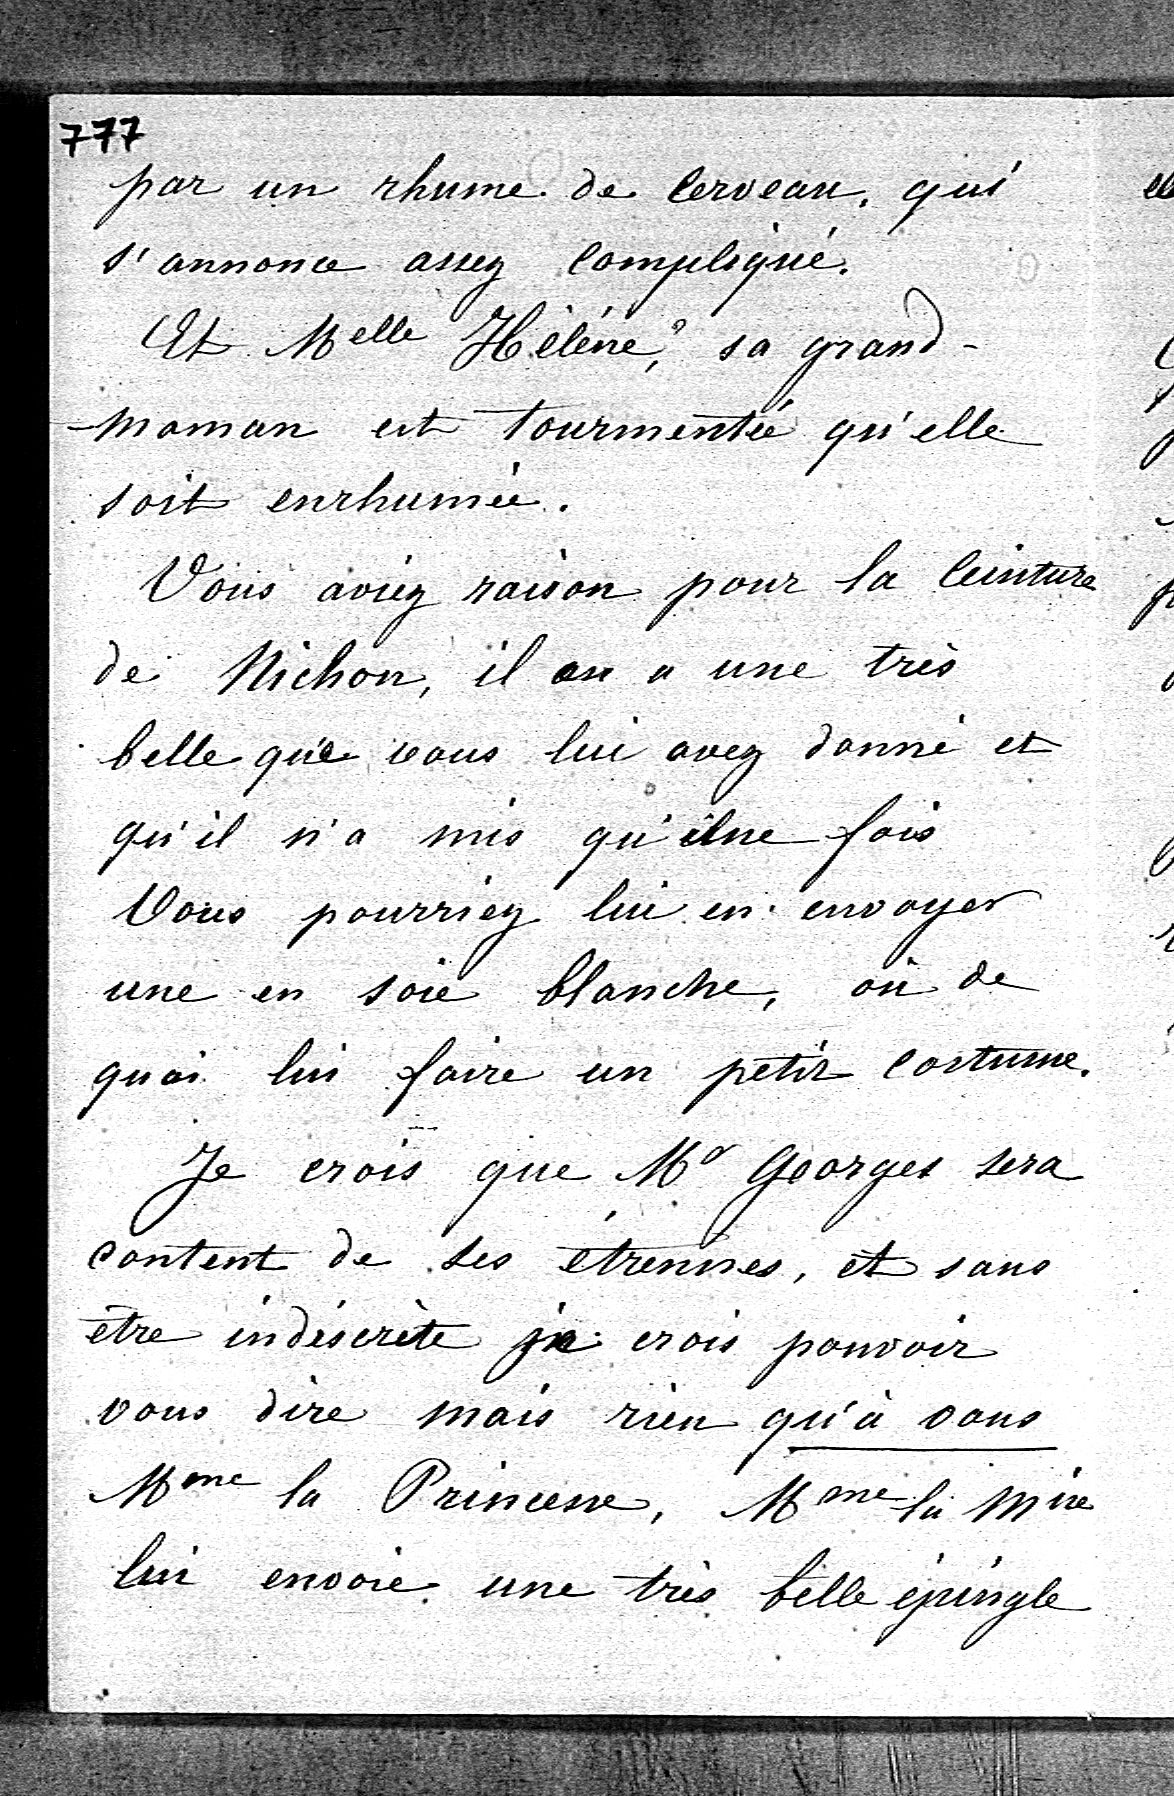 777
par un rhume de cerveau, qui
s'annonce assez compliqué.
Et Melle Héléne, ? sa grand-
-maman est tourmentée qu'elle
soit enrhumée.
Vous aviez raison pour la ceinture
de Nichon, il en a une très
belle que vous lui avez donné et
qu'il n'a mis qu'une fois
Vous pourriez lui en envoyer
une en soie blanche, ou de
quoi lui faire un petit costume.
Je crois que Mr Georges sera
content de ses étrennes, et sans
etre indiscrète je crois pouvoir
vous dire mais rien qu'à vous
Mme la Princesse, Mme la Mise
lui envoie une très belle épingle